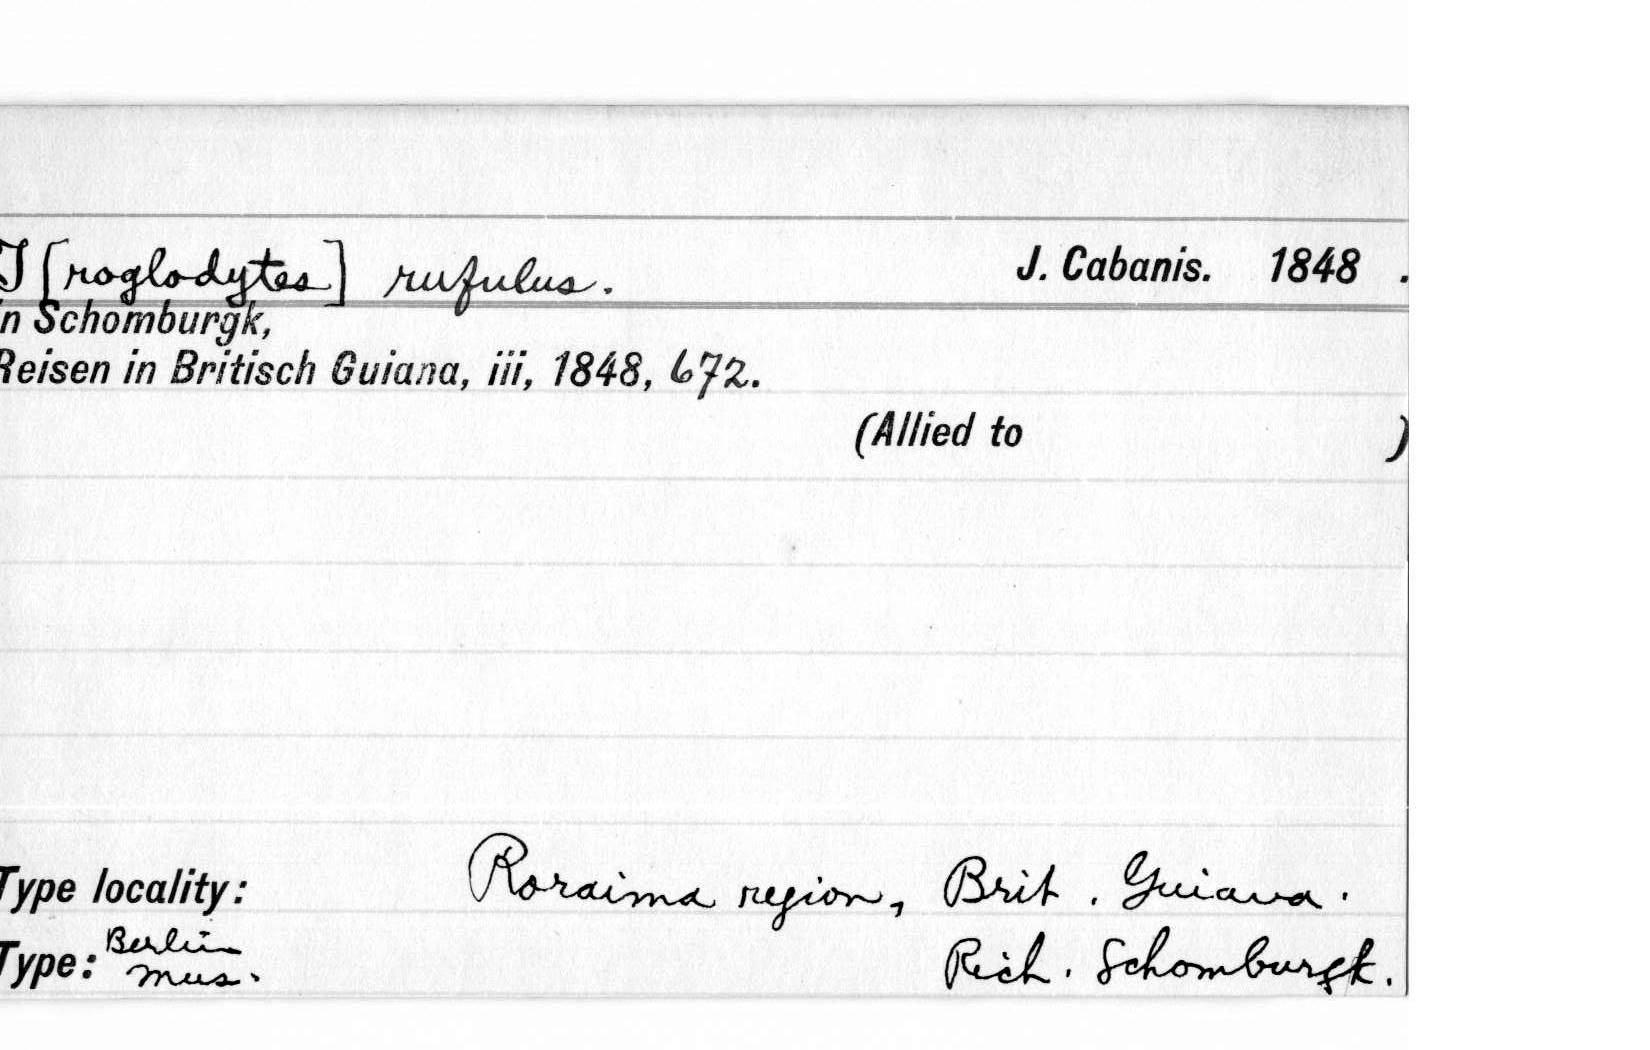 T[roglodytes] rufulus. J. Cabanis. 1848 .
in Schomburgk,
Reisen in Britisch Guiana, iii, 1848, 672.
(Allied to )
Type locality: Roraima region, Brit. Guiana.
Type: Berlin Mus. Rich. Schomburgk.